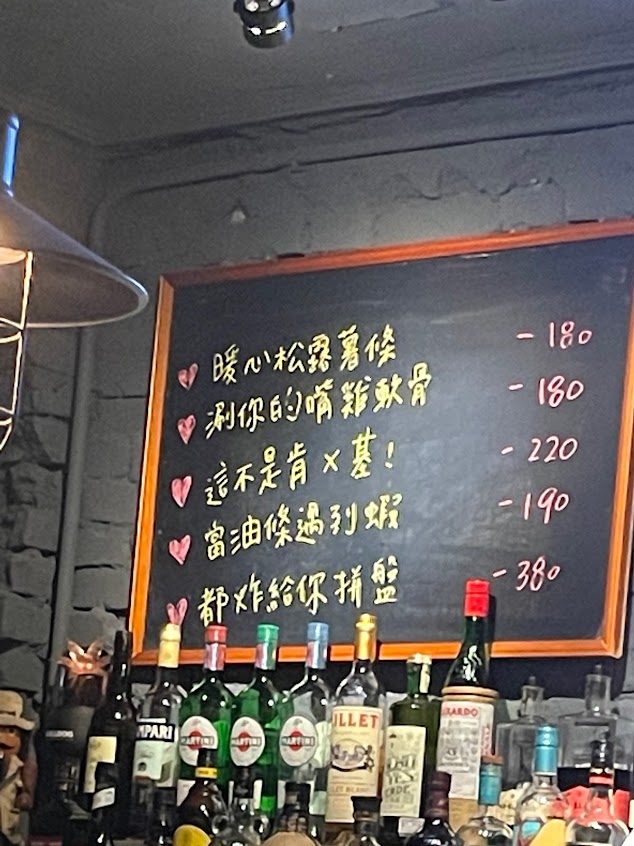 暖心松露薯條 -180
涮你的嘴雞軟骨 -180
這不是肯x基! -220
當油條遇到蝦 -190
都炸給你拼盤 -380
MPARI
MARTINI
MARTINI
MARTINI
ILLET
ERARDO